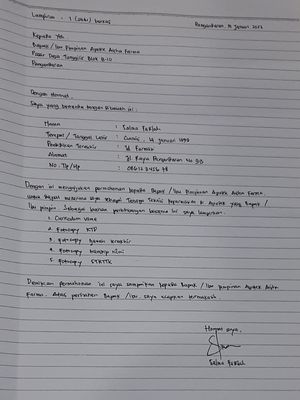 Lampiran : 1 (satu) berkas
Pangandaran, 14 Januari 2022
Kepada Yth
Bapak / Ibu Pimpinan Apotek Aisha Farma
Pasar Desa Blok B-10
Pangandaran
Dengan Hormat,
Saya yang bertanda tangan dibawah ini :
Nama : Salwa
Tempat / Tanggal Lahir : Ciamis, 14 Januari
Pendidikan Terakhir : Farmasi
Alamat : Jl. Raya Pangandaran No
NO. Tlp/Hp :
Dengan ini mengajukan permohonan kepada Bapak / Ibu Pimpinan Apotek Aisha Farma,
untuk dapat Tenaga Teknis Kefarmasian di Apotek yang Bapak /
Ibu pimpin. Sebagai bahan pertimbangan bersama ini saya lampirkan :
1. Curriculum Vitae
2. Fotocopy KTP
3. Fotocopy Ijazah terakhir
4. Fotocopy transkip nilai
5. Fotocopy STRTTK
Demikian permohonan ini saya sampaikan kepada Bapak / Ibu Pimpinan Apotek Aisha
Farma. Atas perhatian Bapak / Ibu, saya ucapkan terimakasih.
Hormat saya,
Salwa